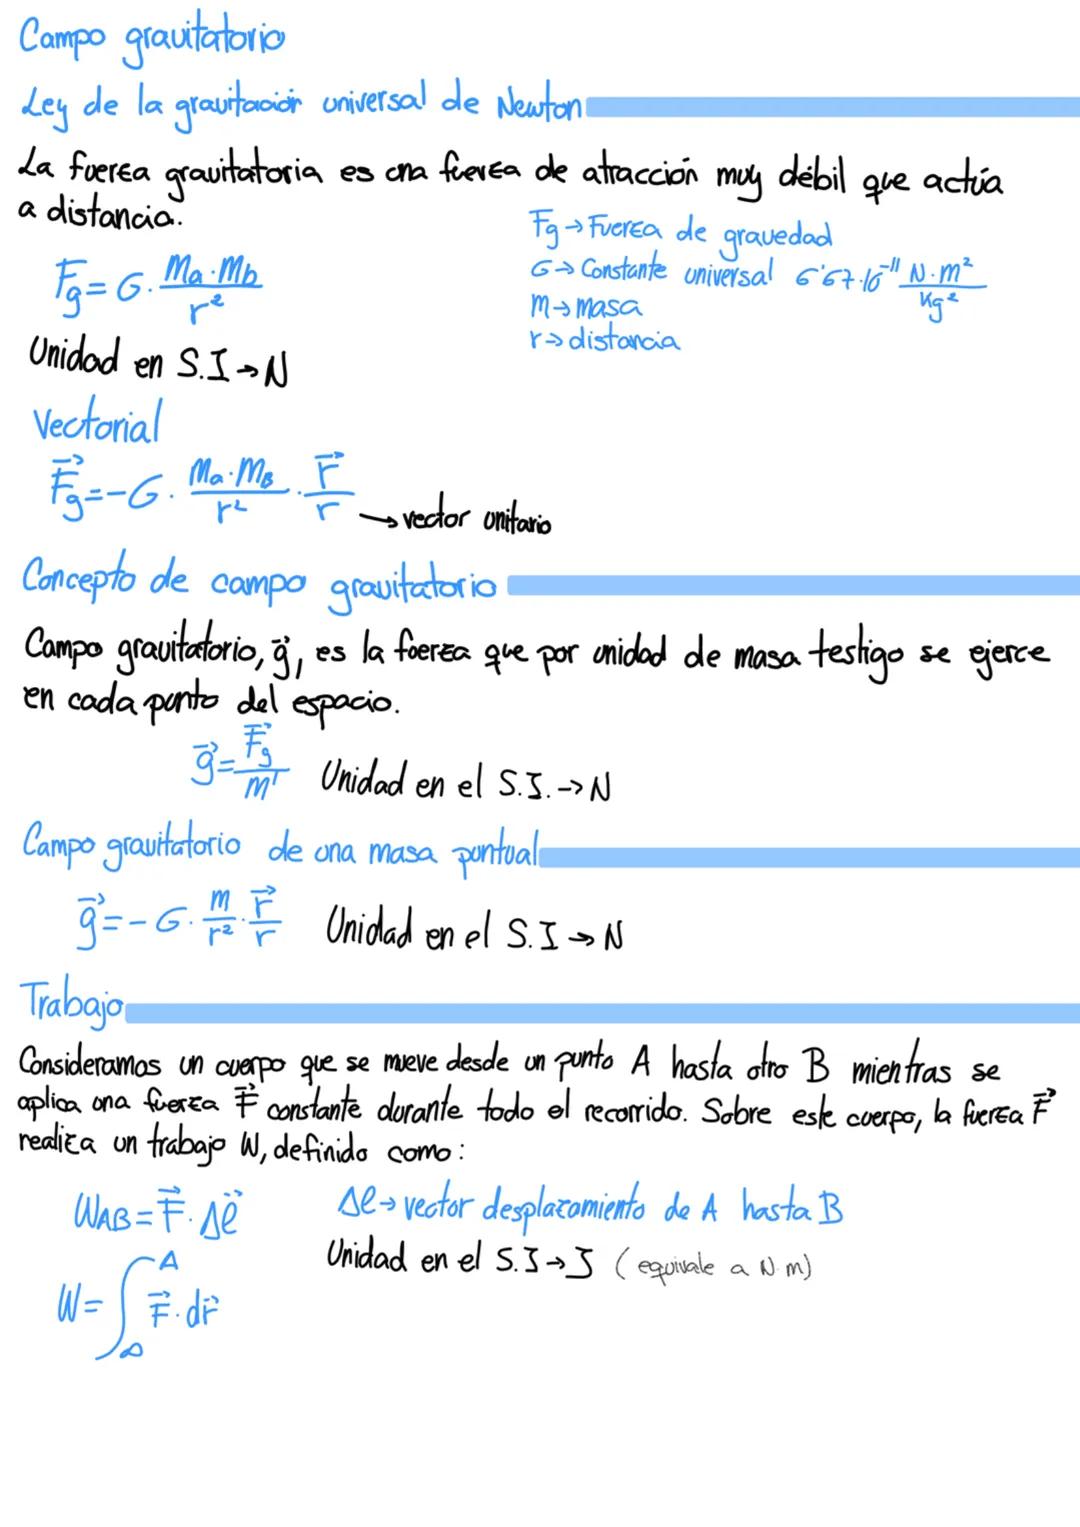 Campo gravitatorio
Ley de la gravitación universal de Newton
La fuerza gravitatoria es una fuerza de atracción muy débil que actúa
a distancia.
Fg = G · Ma·Mb / r²
Fg → Fuerza de gravedad
G → Constante universal 6'67·10⁻¹¹ N·m² / Kg²
m → masa
r → distancia
Unidad en S.I → N
Vectorial
F⃗g = -G · Ma·MB / r² · r⃗ / r → vector unitario
Concepto de campo gravitatorio
Campo gravitatorio, g⃗, es la fuerza que por unidad de masa testigo se ejerce
en cada punto del espacio.
g⃗ = F⃗g / m' Unidad en el S.I. → N
Campo gravitatorio de una masa puntual
g⃗ = -G · m / r² · r⃗ / r Unidad en el S.I → N
Trabajo
Consideramos un cuerpo que se mueve desde un punto A hasta otro B mientras se
aplica una fuerza F⃗ constante durante todo el recorrido. Sobre este cuerpo, la fuerza F⃗
realiza un trabajo W, definido como:
WAB = F⃗ · Δl⃗ Δl → vector desplazamiento de A hasta B
Unidad en el S.I → J (equivale a N·m)
W = ∫_∞^A F⃗ · dr⃗